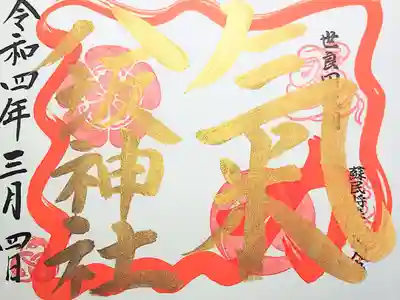 世良
蘇民将
氣
八坂神社
令和四年三月四日